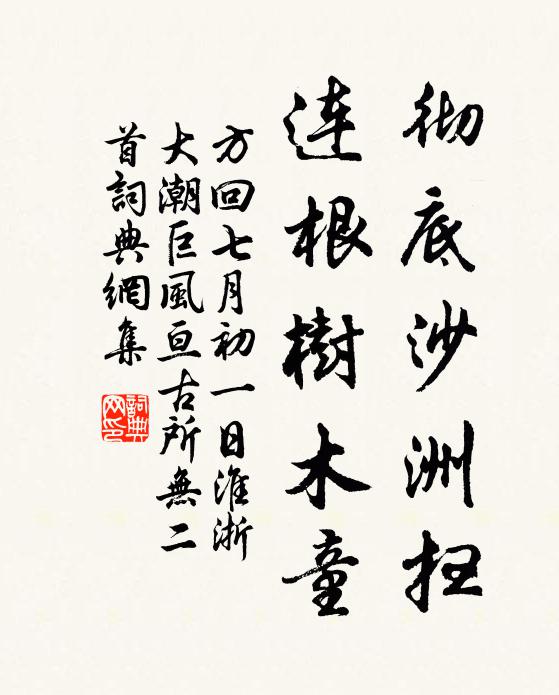 彻底沙洲扭
連根樹木童
方回七月初一日淮浙
大潮巨風亘古所無二
首詞典網集
詞典
网印